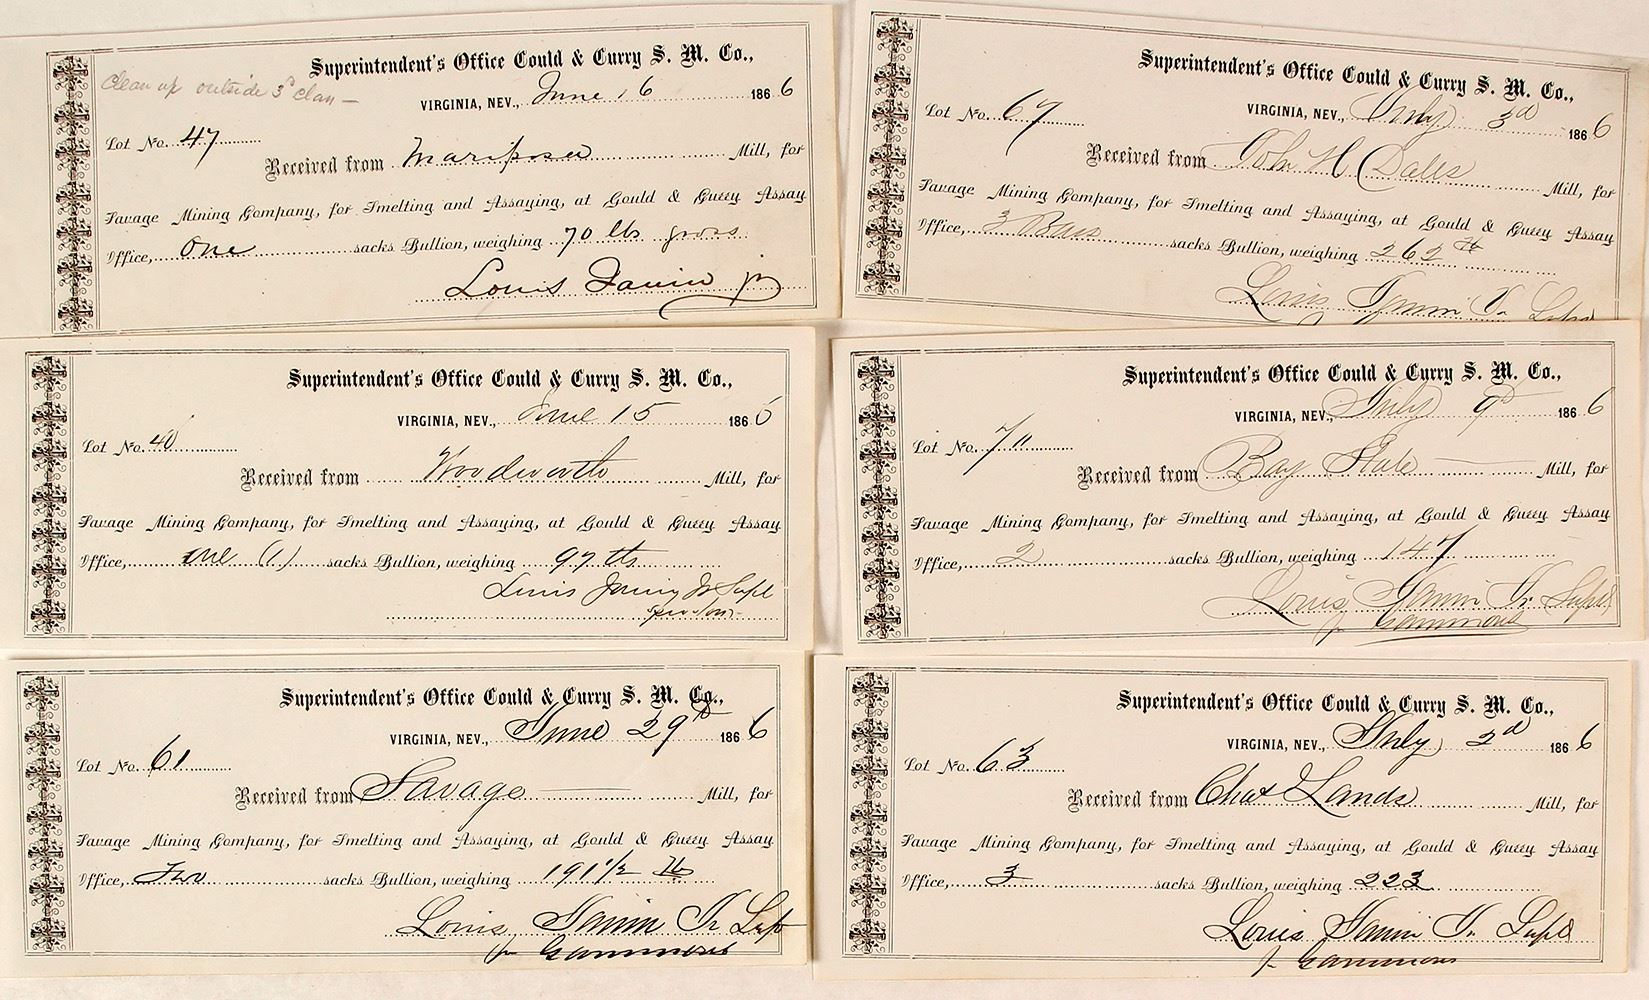 Superintendent's Office Gould & Curry S. M. Co.,
Clean up outside 3d class —
VIRGINIA, NEV., June 16 1866
Lot No. 47
Received from Mariposa Mill, for
Savage Mining Company, for Smelting and Assaying, at Gould & Curry Assay
Office, One sacks Bullion, weighing 70 lbs gross
Louis Janin jr
Superintendent's Office Gould & Curry S. M. Co.,
VIRGINIA, NEV., July 3d 1866
Lot No. 67
Received from John H Dalls Mill, for
Savage Mining Company, for Smelting and Assaying, at Gould & Curry Assay
Office, 3 Bars sacks Bullion, weighing 262 lb
Louis Janin Jr Supt
Superintendent's Office Gould & Curry S. M. Co.,
VIRGINIA, NEV., June 15 1866
Lot No. 40
Received from Woodworth Mill, for
Savage Mining Company, for Smelting and Assaying, at Gould & Curry Assay
Office, one (1) sacks Bullion, weighing 97 lbs
Louis Janin Jr Supt
Superintendent's Office Gould & Curry S. M. Co.,
VIRGINIA, NEV., July 9th 1866
Lot No.
Received from Bay State Mill, for
Savage Mining Company, for Smelting and Assaying, at Gould & Curry Assay
Office, 2 sacks Bullion, weighing 147
Louis Janin Jr Supt
pr Gammons
Superintendent's Office Gould & Curry S. M. Co.,
VIRGINIA, NEV., June 29th 1866
Lot No. 61
Received from Savage Mill, for
Savage Mining Company, for Smelting and Assaying, at Gould & Curry Assay
Office, Two sacks Bullion, weighing 191 1/2 lb
Louis Janin Jr Supt
pr Gammons
Superintendent's Office Gould & Curry S. M. Co.,
VIRGINIA, NEV., July 2d 1866
Lot No. 63
Received from Chas Lands Mill, for
Savage Mining Company, for Smelting and Assaying, at Gould & Curry Assay
Office, 3 sacks Bullion, weighing 223
Louis Janin Jr Supt
pr Gammons